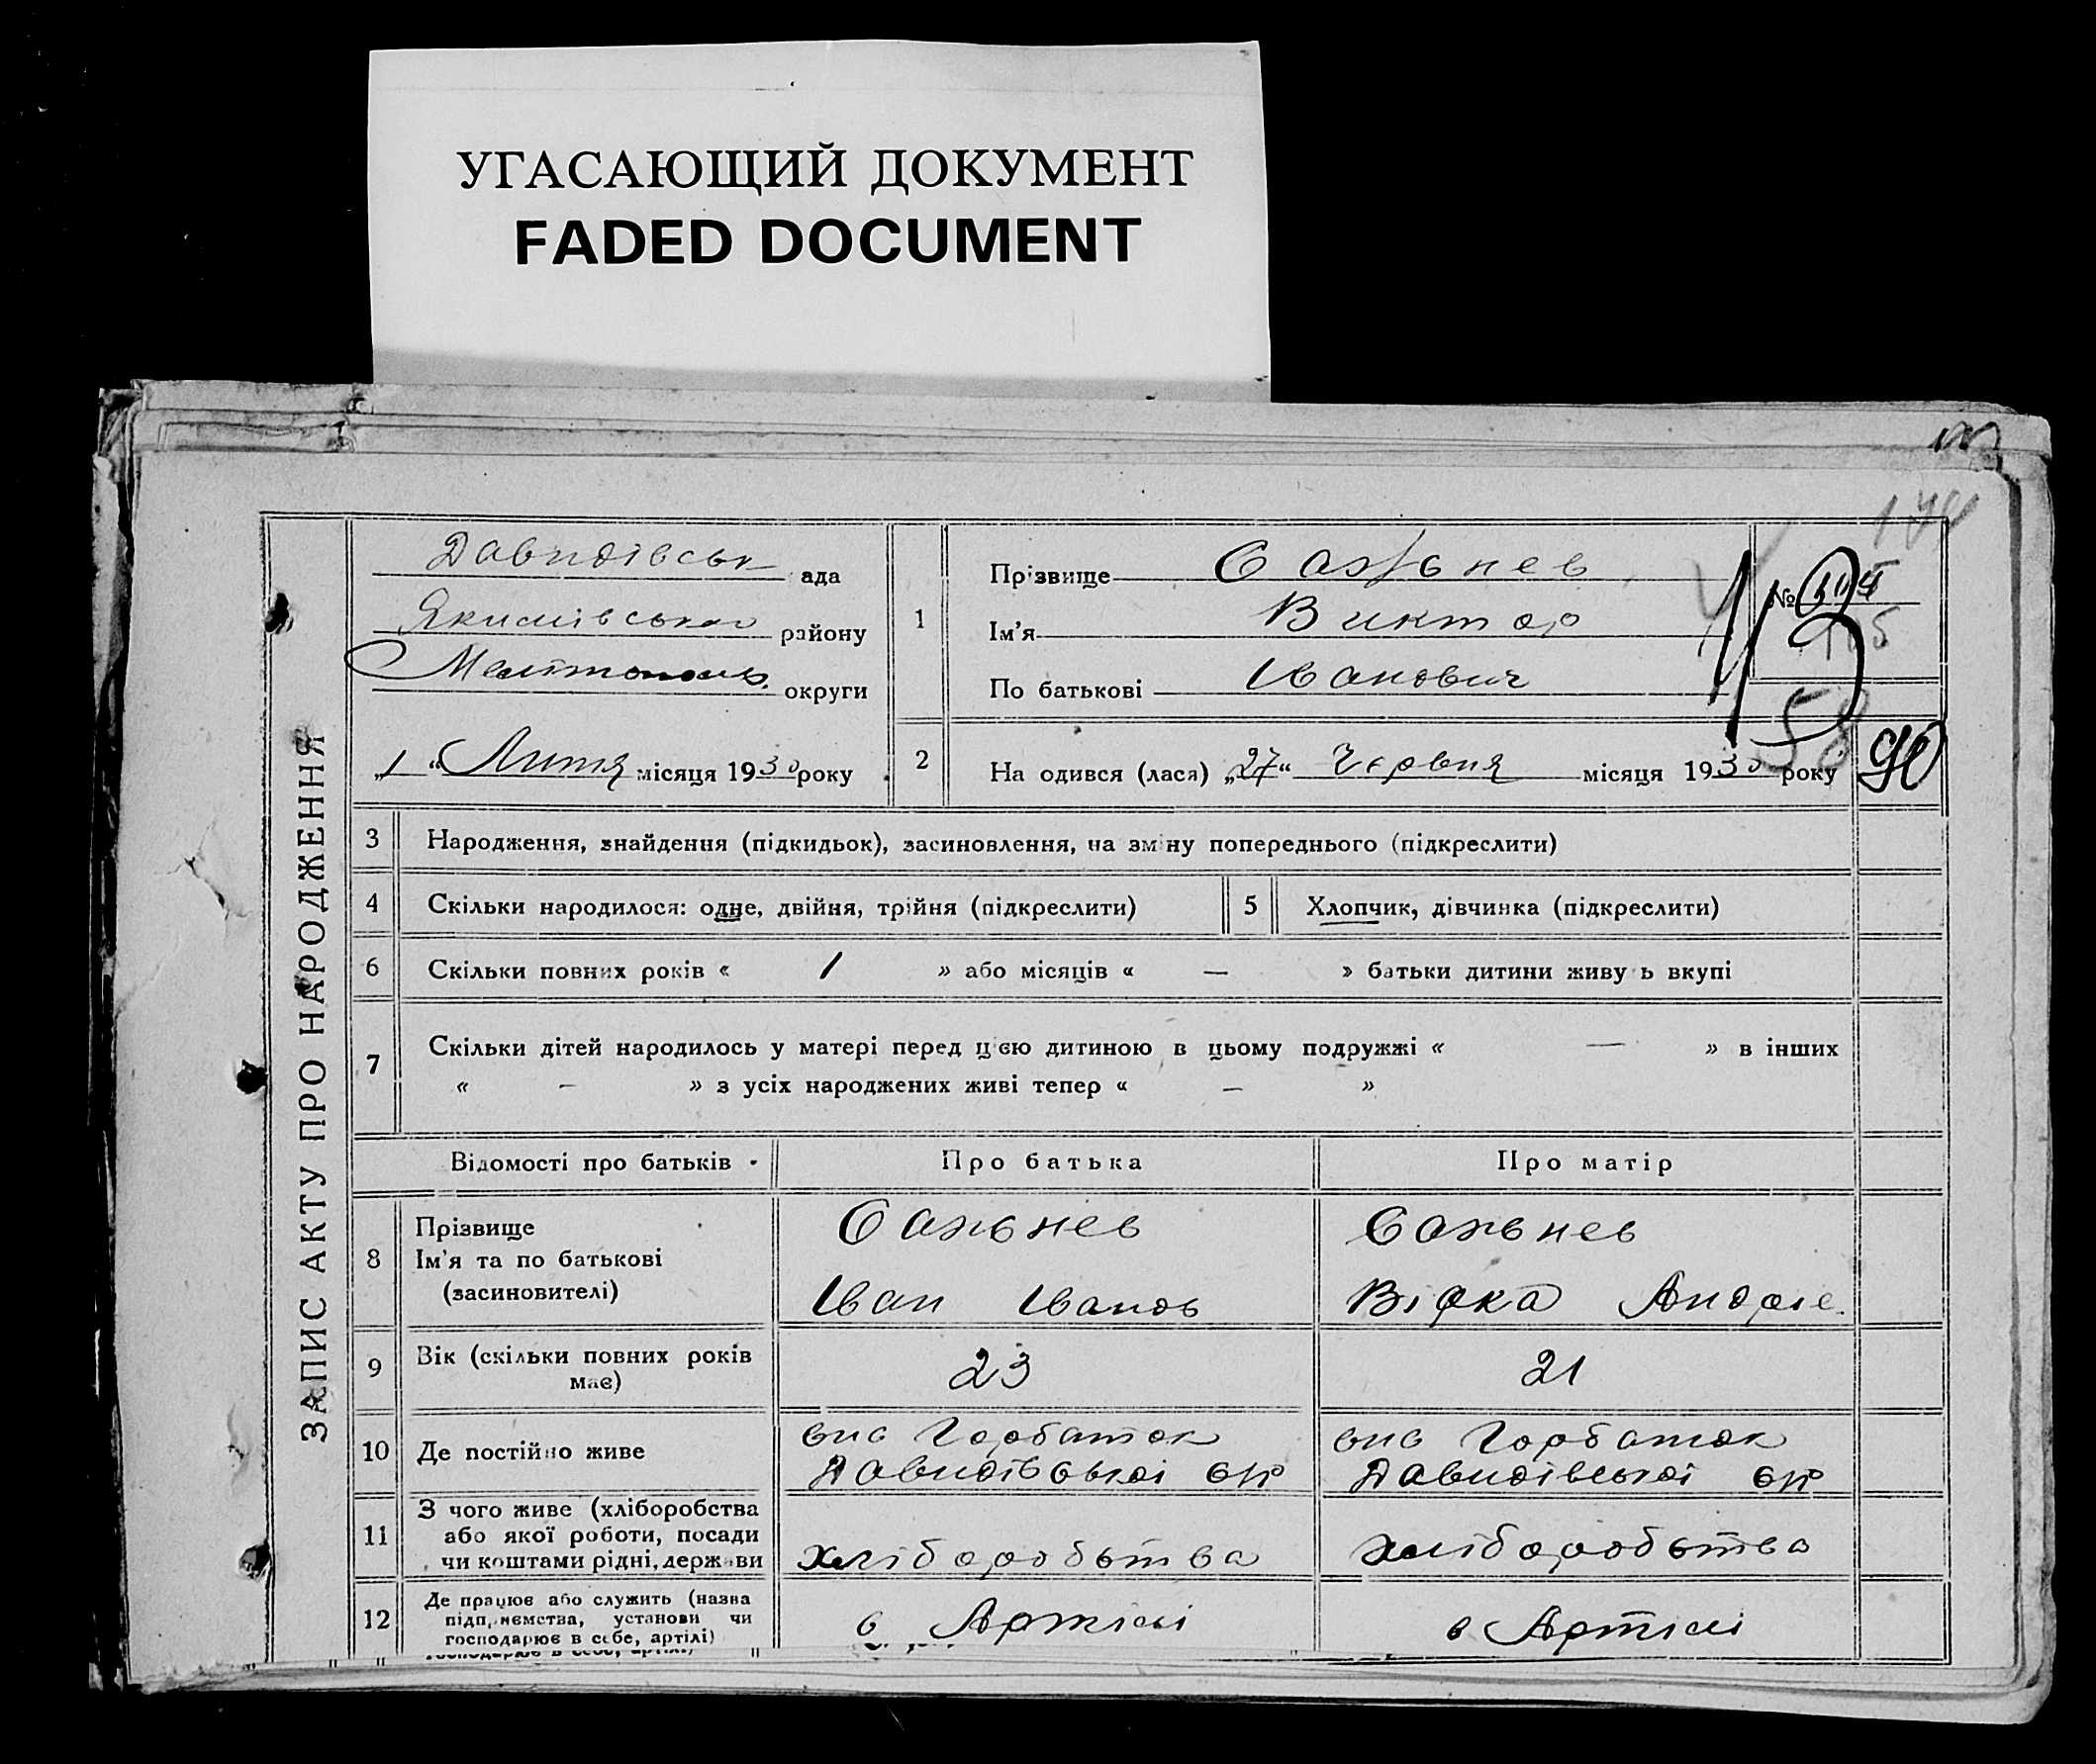 УГАСАЮЩИЙ ДОКУМЕНТ
FADED DOCUMENT
ЗАПИС АКТУ ПРО НАРОДЖЕННЯ
Давидівськ ада
Якимівського району
Мелітополь. округи
„1“ Липня місяця 1930 року
1
Прізвище
Ім'я Виктор
По батькові Іванович
№
58
90
2
На одився (лася) „27“ Червня місяця 1930 року
3 Народження, знайдення (підкидьок), засиновлення, на зміну попереднього (підкреслити)
4 Скільки народилося: одне, двійня, трійня (підкреслити)
5 Хлопчик, дівчинка (підкреслити)
6 Скільки повних років « 1 » або місяців « — » батьки дитини живу ь вкупі
7 Скільки дітей народилось у матері перед цією дитиною в цьому подружжі « — » в інших
« – » з усіх народжених живі тепер « — »
Відомості про батьків Про батька Про матір
8 Прізвище
Ім'я та по батькові
(засновителі)
Іван Іванов
Андріє.
9 Вік (скільки повних років
має)
23 21
10 Де постійно живе
Горбаток Горбаток
Давидівської с/р Давидівської с/р
11 З чого живе (хліборобства
або якої роботи, посади
чи коштами рідні, держави
хліборобства хліборобства
12 Де працює або служить (назва
підприємства, установи чи
господарює в себе, артілі)
в Артілі в Артілі